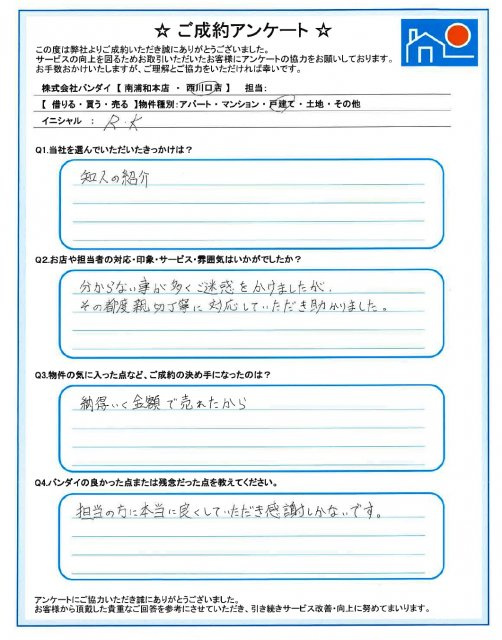 ☆ ご成約アンケート ☆
この度は弊社よりご成約いただき誠にありがとうございました。
サービスの向上を図るためお取引いただいたお客様にアンケートの協力をお願いしております。
お手数おかけいたしますが、ご理解とご協力をいただければ幸いです。
株式会社バンダイ 【 南浦和本店 ・ 西川口店 】 担当:
【 借りる・買う・売る 】物件種別:アパート・マンション・戸建て・土地・その他
イニシャル : R・K
Q1.当社を選んでいただいたきっかけは？
知人の紹介
Q2.お店や担当者の対応・印象・サービス・雰囲気はいかがでしたか？
分からない事が多くご迷惑をかけましたが、
その都度親切丁寧に対応していただき助かりました。
Q3.物件の気に入った点など、ご成約の決め手になったのは？
納得いく金額で売れたから
Q4.バンダイの良かった点または残念だった点を教えてください。
担当の方に本当に良くしていただき感謝しかないです。
アンケートにご協力いただき誠にありがとうございました。
お客様から頂戴した貴重なご回答を参考にさせていただき、引き続きサービス改善・向上に努めてまいります。